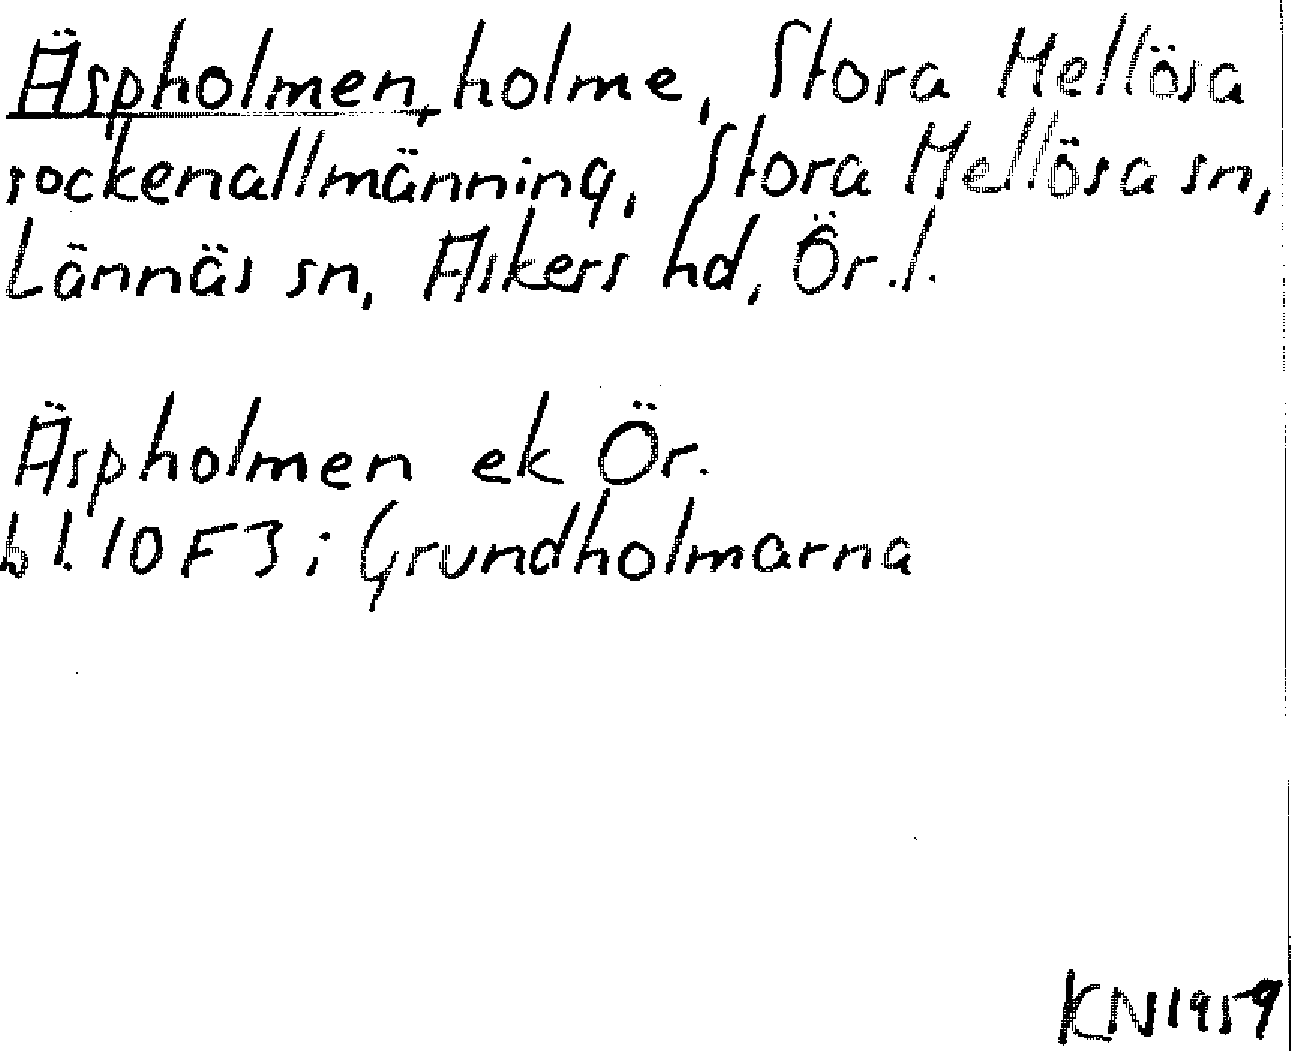 Äspholmen, holme, Stora Mellösa
sockenallmänning, Stora Mellösa sn,
Lännäs sn, Askers hd, Ör. l.
Äspholmen ek Ör.
bl. 10F3 i Grundholmarna
KN1959